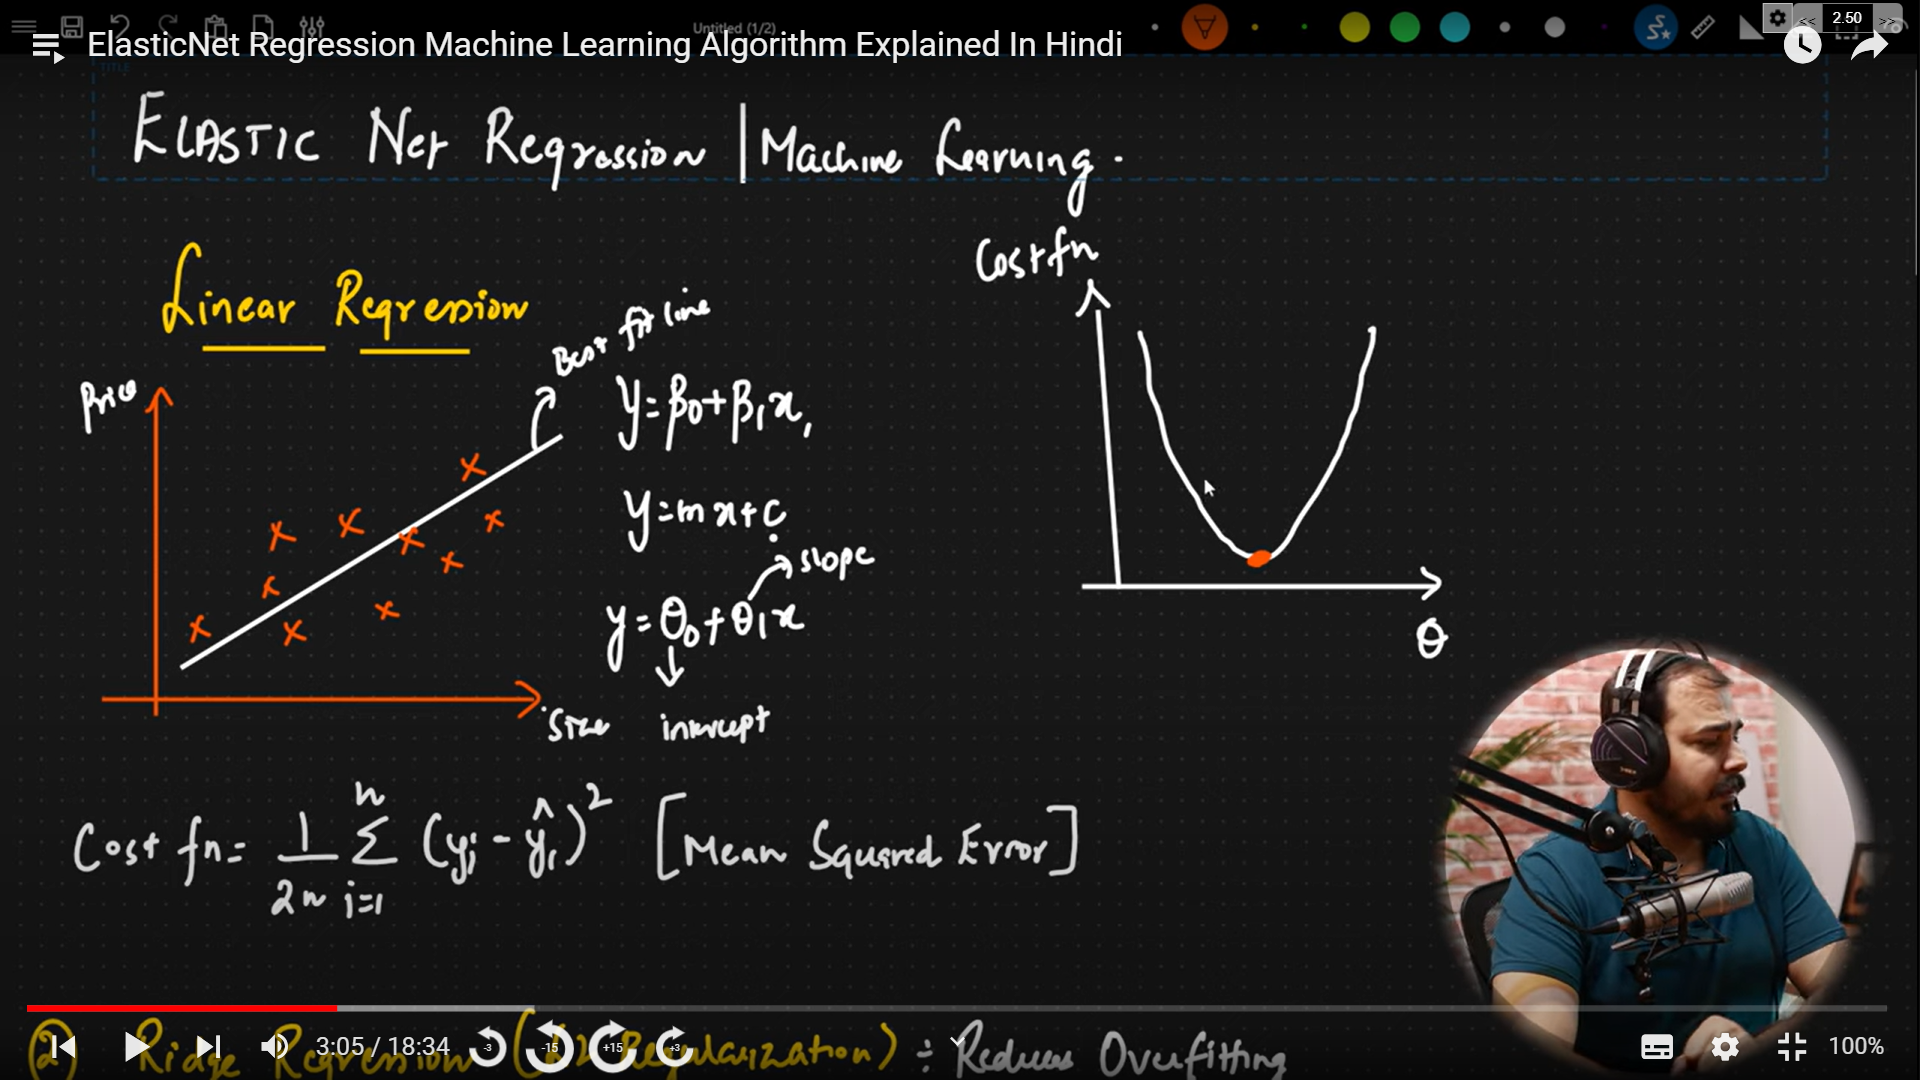 Untitled (1/2)
<< 2.50 >>
ElasticNet Regression Machine Learning Algorithm Explained In Hindi
TITLE
ELASTIC Net Regression | Machine Learning.
Cost fn
Linear Regression
Best fit line
Price
y=β0+β1x1
y=mx+c
slope
y=θ0+θ1x
θ
Size
intercept
Cost fn = 1/2n Σ i=1 n (yi - ŷi)² [Mean Squared Error]
② Ridge Regression (L2 Regularization) ÷ Reduces Overfitting
3:05 / 18:34
-3
-15
+15
+3
100%